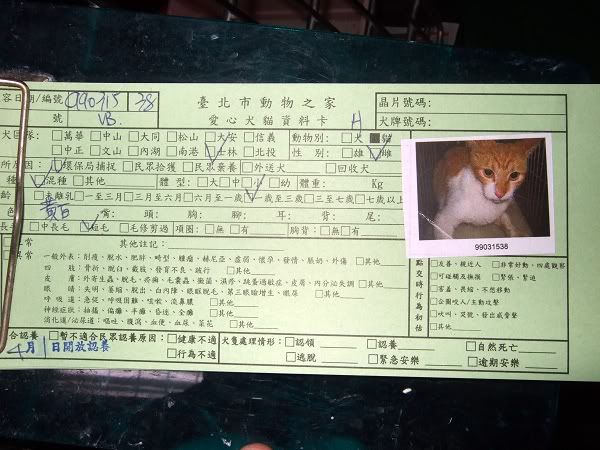 容日期/編號 990315 38 臺北市動物之家 晶片號碼:
號 VB. 愛心犬貓資料卡 H 犬牌號碼:
犬區隊: □萬華 □中山 □大同 □松山 □大安 □信義 動物別: □犬 ■貓
□中正 □文山 □內湖 □南港 □士林 □北投 性 別: □雄 □雌
所原因: □環保局捕捉 □民眾拾獲 □民眾棄養 □外送犬 □回收犬
種 □混種 □其他 體 型: □大 □中 □小 □幼 體重: Kg
齡 □未離乳 □一至三月 □三月至六月 □六月至一歲 □一歲至三歲 □三至七歲 □七歲以上
色 黃白 嘴: 頭: 胸: 腳: 耳: 背: 尾:
長 □中長毛 □短毛 □毛修剪過 項圈: □無 □有 胸背: □無 □有
99031538
常 □異常 其他註記:
一般外表: 削瘦、脫水、肥胖、畸型、腫瘤、赫尼亞、虛弱、懷孕、發情、脹奶、外傷 □其他
四 肢: 骨折、脫臼、截肢、發育不良、跛行 □其他
皮 膚: 外寄生蟲、脫毛、疥癬、毛囊蟲、黴菌、濕疹、跳蚤過敏症、皮屑、內分泌失調 □其他
眼 睛: 失明、萎縮、脫出、白內障、眼瞼脫毛、第三眼瞼增生、眼屎 □其他
呼 吸 道: 急促、呼吸困難、咳嗽、流鼻膿 □其他
神經症狀: 抽搐、偏癱、半癱、昏迷、全癱 □其他
消化道/泌尿道: 嘔吐、腹瀉、血便、血尿、菜花 □其他
點交時行為初估
□友善、親近人 □非常好動、四處觀察
□可碰觸及撫摸 □緊張、緊迫
□害羞、長縮、不想移動
□企圖咬人/主動攻擊
□吠叫、哭號、發出威脅聲
□其他
合認養 □暫不適合民眾認養原因: □健康不適 犬隻處理情形: □認領 □認養 □自然死亡
4月1日開放認養 □行為不適 □逃脫 □緊急安樂 □逾期安樂